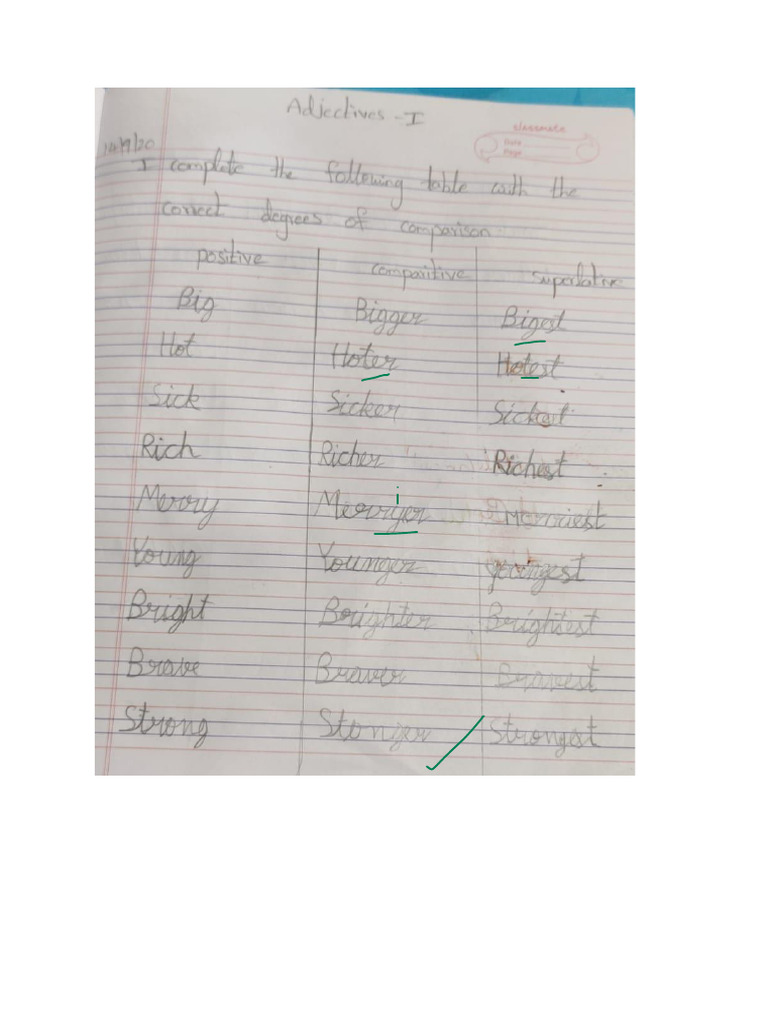 Adjectives - I
classmate
Date
Page
14/9/20
I complete the following table with the
correct degrees of comparison
positive comparitive superlative
Big Bigger Bigest
Hot Hoter Hotest
Sick Sicker Sickest
Rich Richer Richest
Merry Merryer i Merriest
Young Younger youngest
Bright Brighter Brightest
Brave Braver Bravest
Strong Stonger Strongest